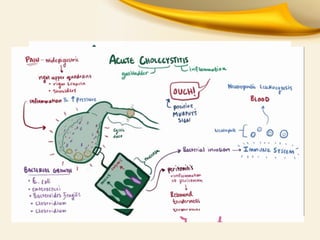 ACUTE CHOLECYSTITIS
gallbladder
inflammation
PAIN - midepigastric
right upper quadrant
• right scapula
• shoulder
inflammation & ↑ pressure
cystic
duct
OUCH!
positive
MURPHY'S
SIGN
Neutrophilic Leukocytosis
BLOOD
neutrophils
mucosa
Bacterial invasion
IMMUNE SYSTEM
BACTERIAL GROWTH
• E. coli
• enterococci
• Bacteroides fragilis
• Clostridium
• Clostridium
peritonitis
inflammation
of peritoneum
Rebound
tenderness